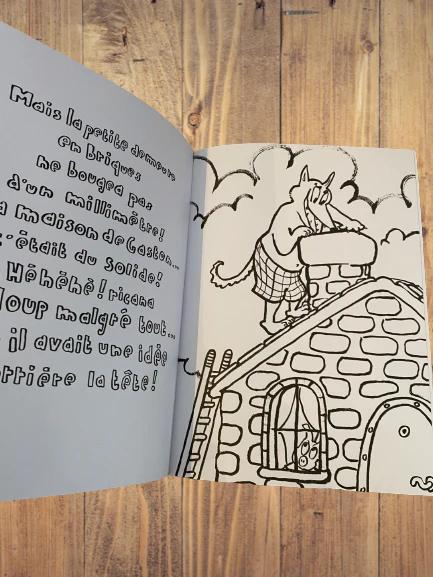 Mais la petite demeure
en briques
ne bougea pas
d'un millimètre!
maison de Gaston...
c'était du solide!
Héhéhé! ricana
loup malgré tout...
il avait une idée
la tête!